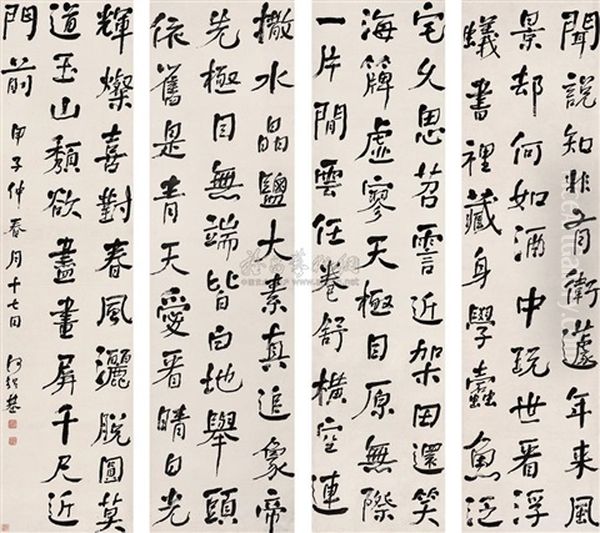 聞說知非有衛蘧年來風
景却何如酒中玩世看浮
蟻書裡藏身學蠹魚泛
宅久思苕霅近架田還笑
海簰虛寥天極目原無際
一片閒雲任卷舒橫空連
撒水晶鹽大素真追象帝
先極目無端皆白地舉頭
依舊是青天愛看晴日光
輝燦喜對春風灑脫圓莫
道玉山頹欲盡畫屏千尺近
門前 甲子仲春月十七日 何紹基